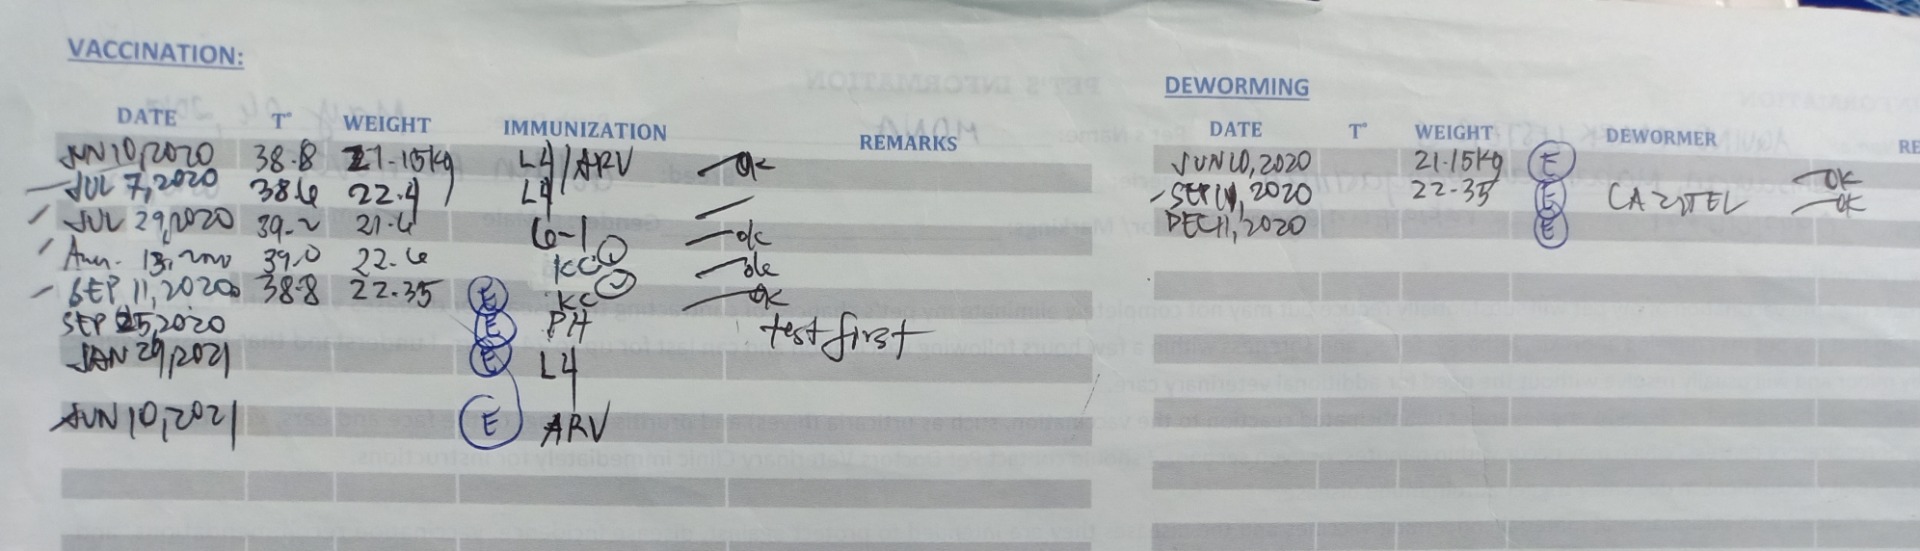 VACCINATION:
DATE T° WEIGHT IMMUNIZATION REMARKS
JUN 10, 2020 38.8 21.15kg L4/ARV ok
JUL 7, 2020 38.6 22.4 L4
JUL 29, 2020 39.2 21.6 6-1 ok
39.0 22.6 KC ok
SEP 11, 2020 38.8 22.35 E KC ok
SEP 25, 2020 E PH test first
JAN 29, 2021 E L4
JUN 10, 2021 E ARV
DEWORMING
DATE T° WEIGHT DEWORMER RE
JUN 10, 2020 21.15kg E OK
SEP 11, 2020 22.35 E CAZITEL OK
DEC 11, 2020 E